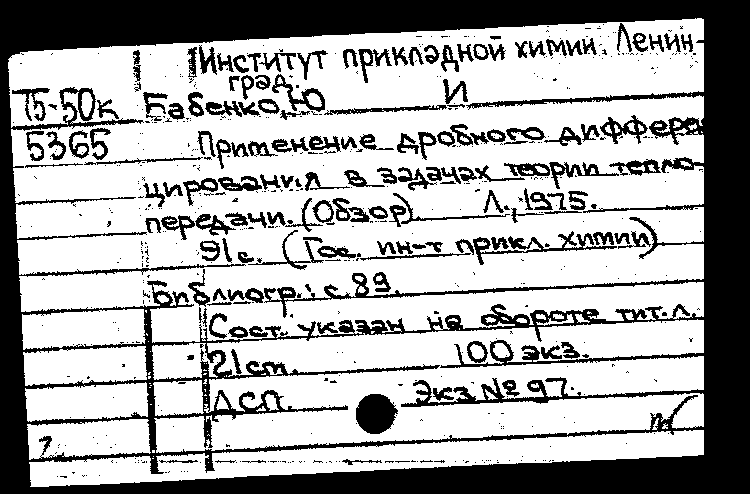 Институт прикладной химии. Ленин-
град.
75-50к Бабенко, Ю И
5365 Применение дробного диффере
цирования в задачах теории тепло-
передачи. (Обзор). Л., 1975.
91 с. (Гос. ин-т прикл. химии)
Библиогр.: с. 89.
Сост. указан на обороте тит. л.
21 см. 100 экз.
ДСП. Экз № 97.